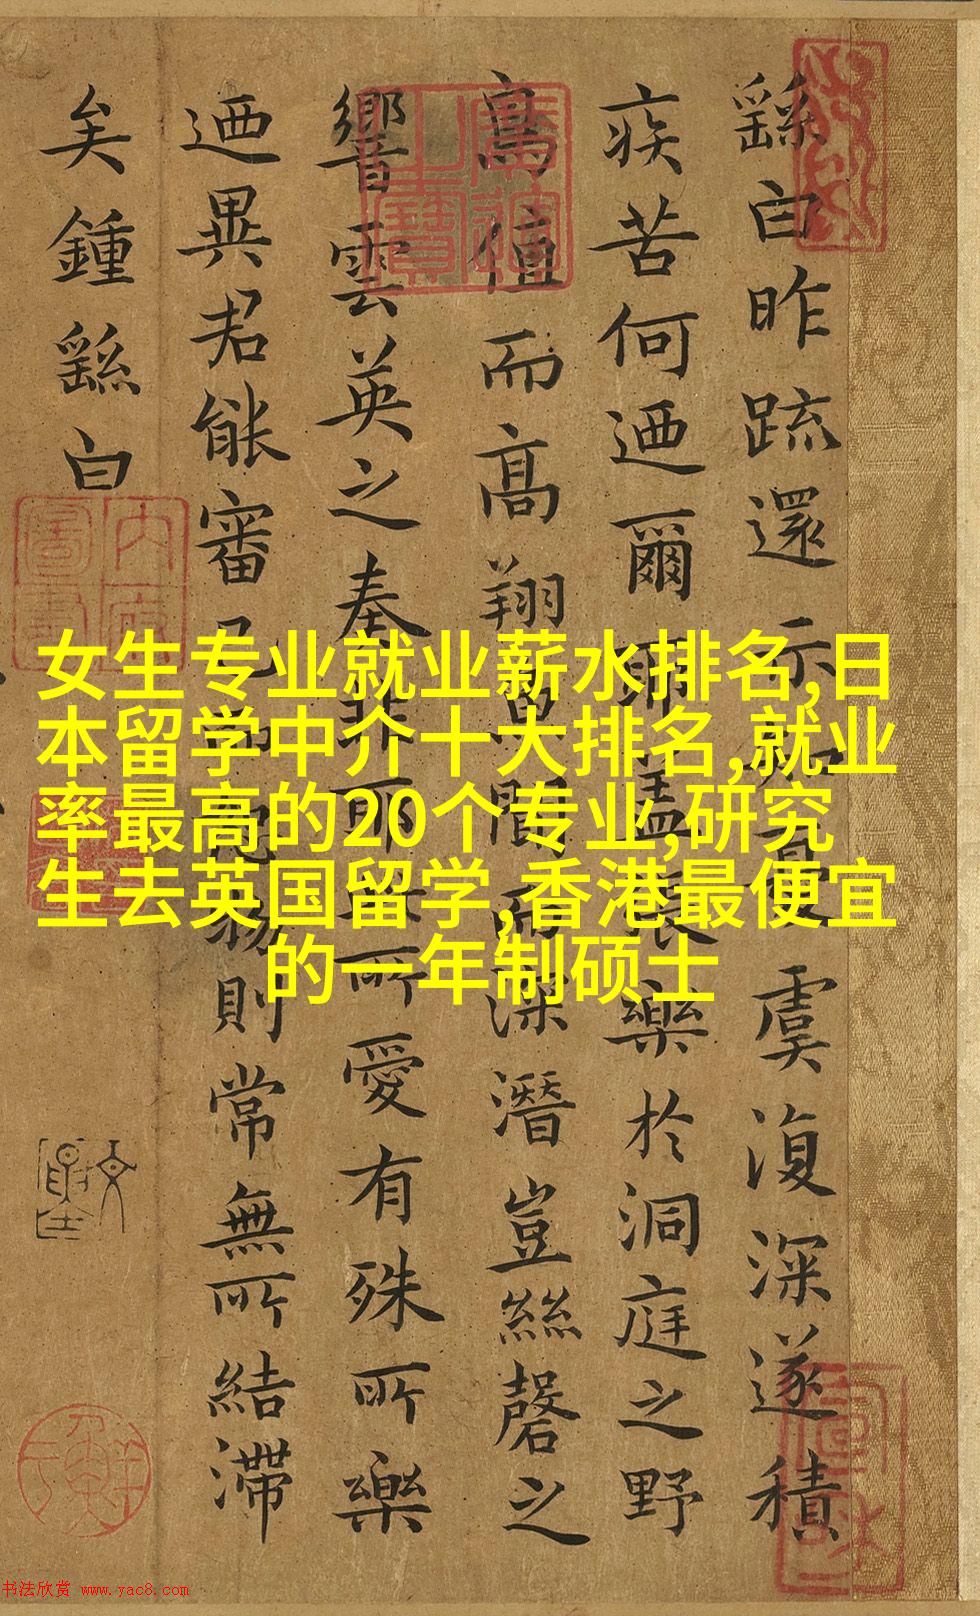 繇白昨疏還示虞復深遂積
疾苦何迺爾耶盖張樂於洞庭之野
鳥值而高翔聞而深潛豈絲磬之
響雲英之奏非耶所愛有殊所樂
迺異君能審己物則常無所結滯
矣鍾繇白
女生专业就业薪水排名,日
本留学中介十大排名,就业
率最高的20个专业,研究
生去英国留学,香港最便宜
的一年制硕士
书法欣赏 www.yac8.com